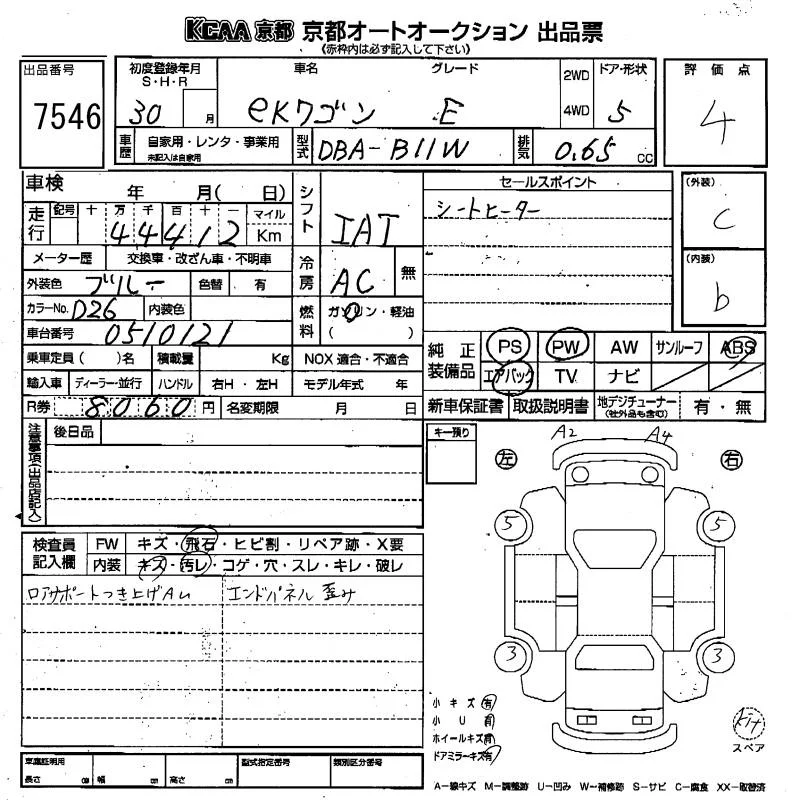 KCAA 京都 京都オートオークション 出品票
(赤枠内は必ず記入して下さい)
出品番号
7546
初度登録年月
S・H・R
30 月
車名 グレード
eKワゴン E
2WD
4WD
ドア・形状
5
評価点
4
車歴
自家用・レンタ・事業用
未記入は自家用
型式
DBA-B11W
排気
0.65 cc
車検 年 月( 日)
走行
記号 十 万 千 百 十 一
44412
マイル
Km
メーター歴 交換車・改ざん車・不明車
外装色 ブルー 色替 有
カラーNo. D26 内装色
車台番号 0510121
乗車定員( )名 積載量 Kg
輸入車 ディーラー・並行 ハンドル 右H・左H
R券 8060 円 名変期限 月 日
シフト
IAT
冷房
AC 無
燃料
ガソリン・軽油
( )
NOX 適合・不適合
モデル年式 年
セールスポイント
シートヒーター
(外装)
C
(内装)
b
純正装備品
PS PW AW サンルーフ ABS
エアバック TV ナビ
新車保証書 取扱説明書 地デジチューナー
(社外品も含む)
有・無
注意事項(出品店記入)
後日品
キー預り
A2 A4
左 右
5 5
3 3
検査員記入欄
FW キズ・飛石・ヒビ割・リペア跡・X要
内装 キズ・汚レ・コゲ・穴・スレ・キレ・破レ
ロアサポートつき上げAU
エンドパネル 歪み
小キズ 有
小U 有
ホイールキズ 有
ドアミラーキズ 有
kit
スペア
車庫証明用
長さ cm 幅 cm 高さ cm
型式指定番号
類別区分番号
A-線キズ M-調整跡 U-凹み W-補修跡 S-サビ C-腐食 XX-取替済